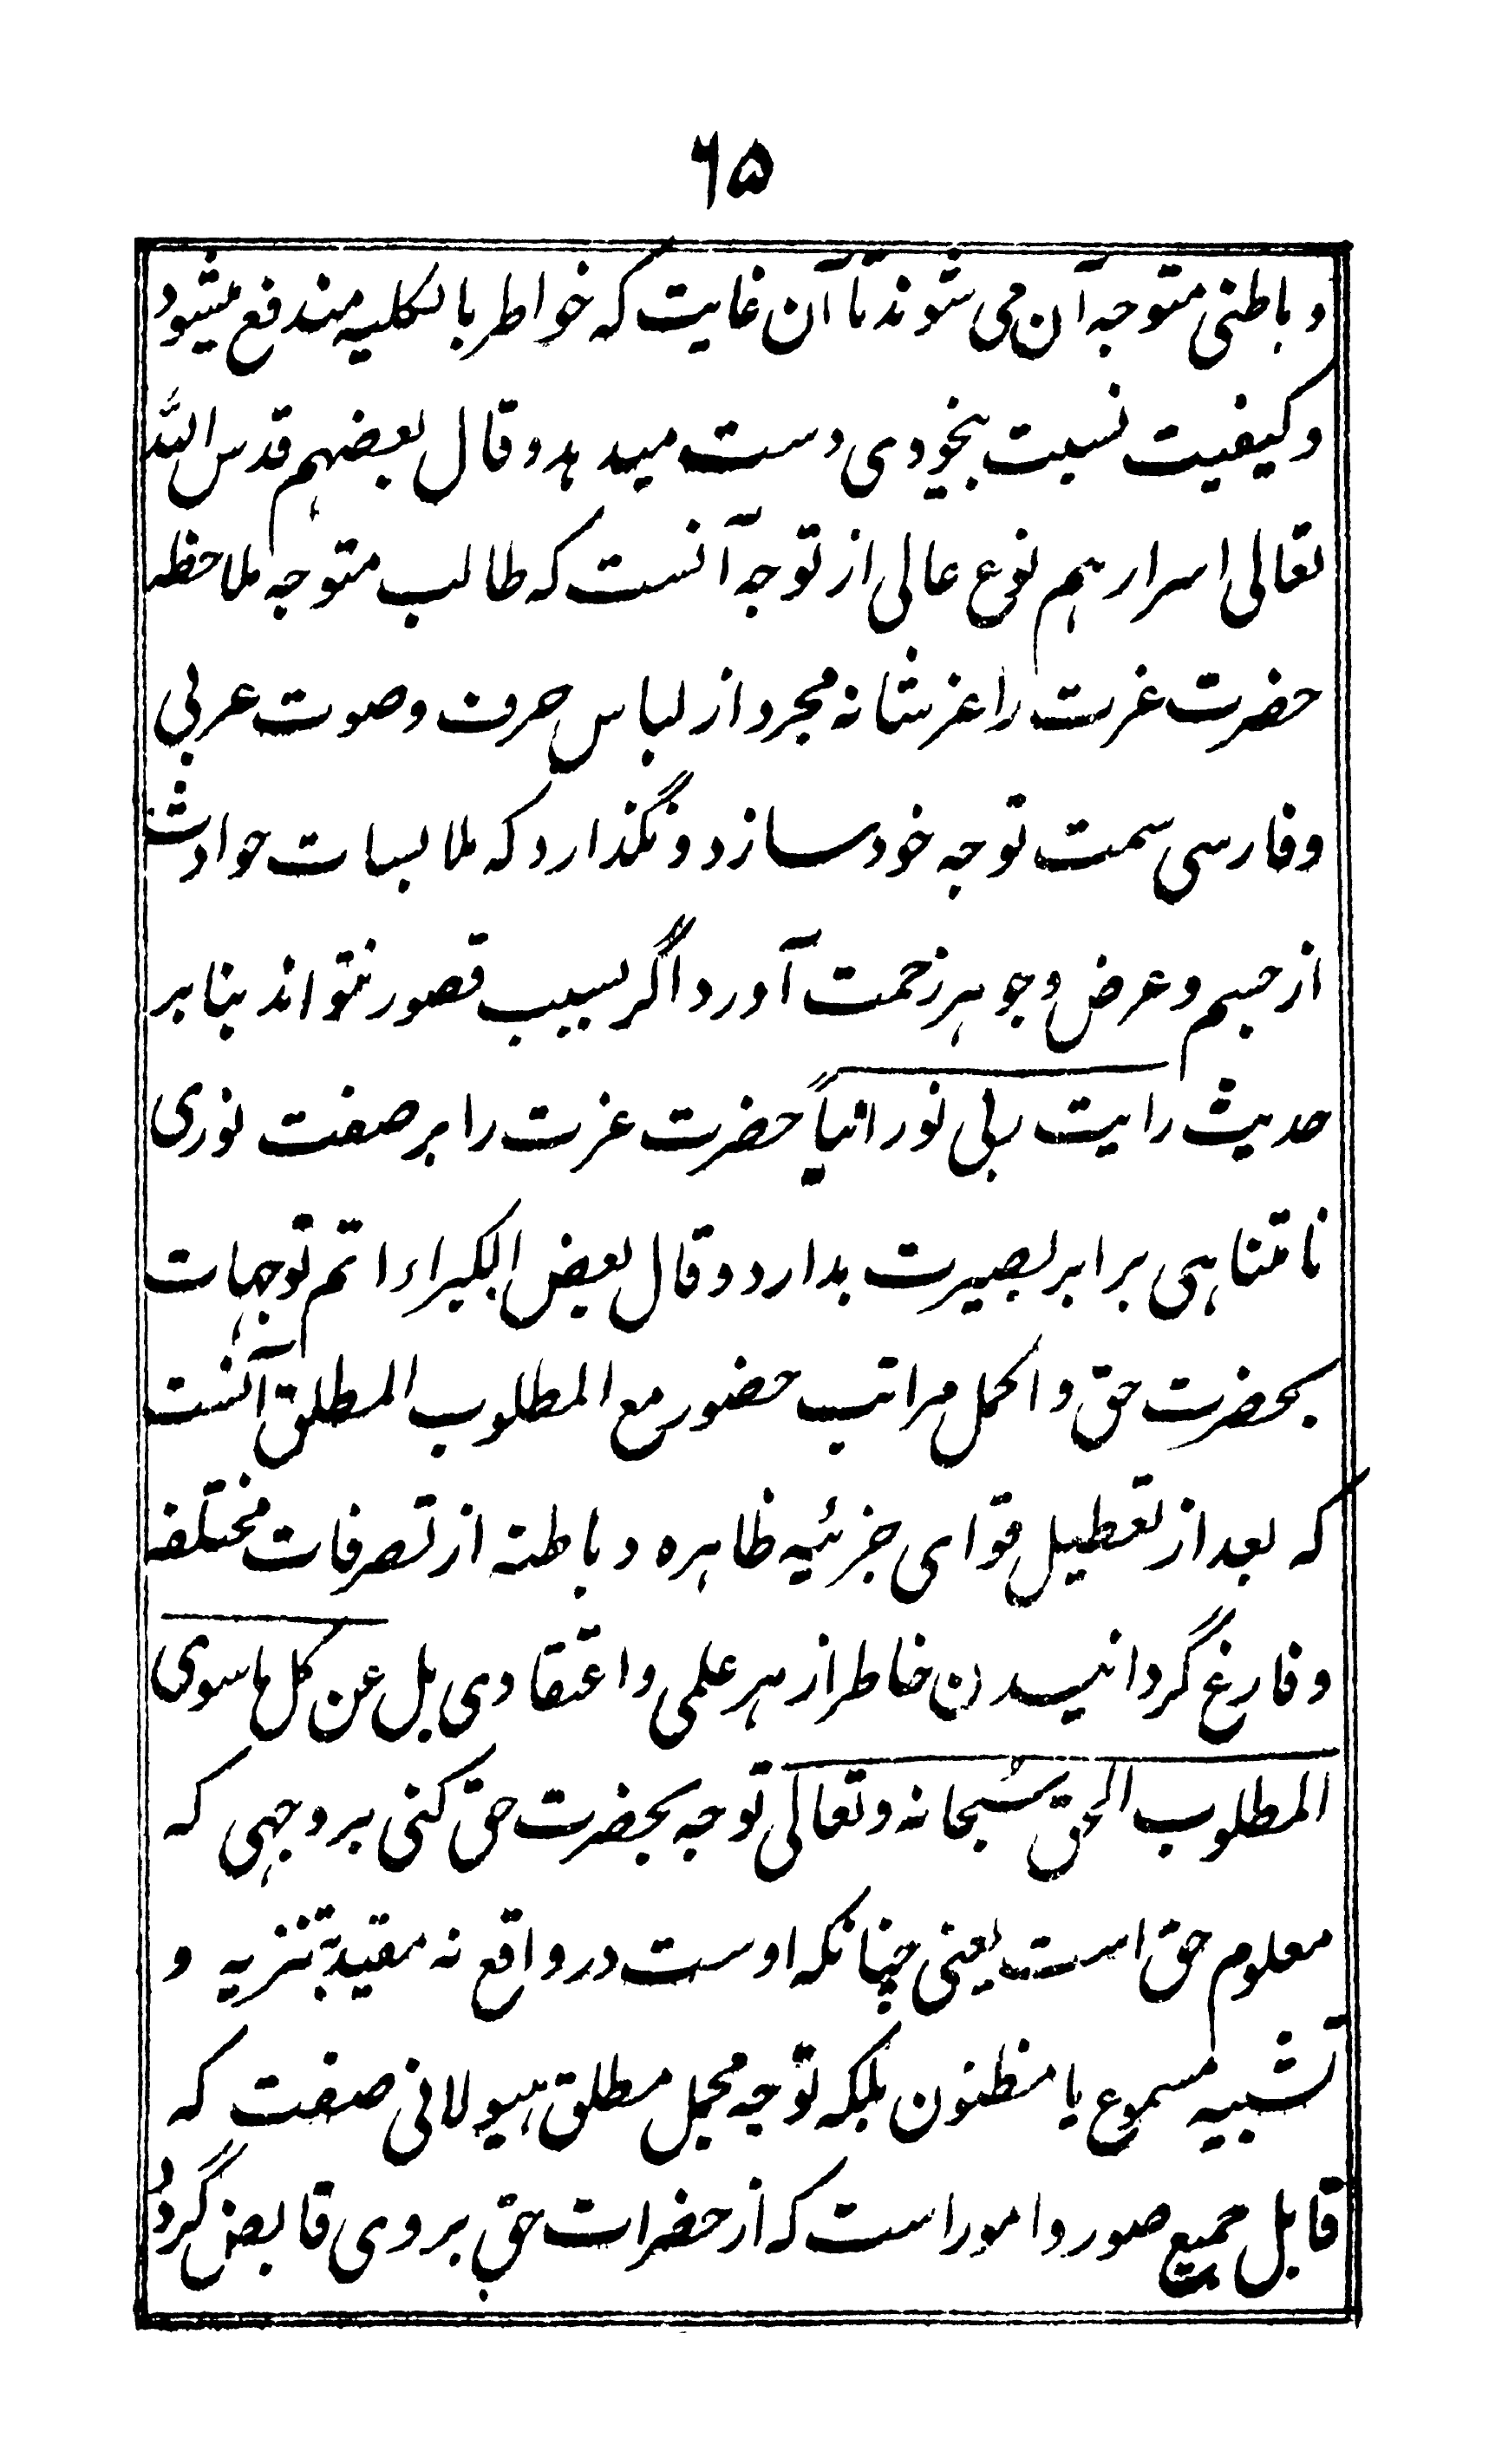 ۶۵
و باطنی متوجه آن می شوند تا آن غایت که خواطر بالکلیه مندفع میشود
و کیفیت نسبت بیخودی دست میدهد و قال بعضهم قدس الله
تعالی اسرارهم نوع عالی از توجه آنست که طالب متوجه ملاحظه
حضرت عزت را عز شانه مجرد از لباس حرف و صوت عربی
و فارسی سمت توجه خود سازد و نگذارد که ملابسات حوادث
از جسم و عرض و جوهر زحمت آورد اگر بسبب قصور نتواند بنابر
حدیث رایت ربی نورانیاً حضرت عزت را بر صفت نوری
نامتناهی برابر بصیرت بدارد و قال بعض الکبراء اتم توجهات
بحضرت حق و اکمل مراتب حضور مع المطلوب المطلق آنست
که بعد از تعطیل قوای جزئیه ظاهره و باطنه از تصرفات مختلفه
و فارغ گردانیدن خاطر از هر علمی و اعتقادی بل عن کل ماسوی
المطلوب الحق سبحانه و تعالی توجه بحضرت حق کنی بر وجهی که
معلوم حق است یعنی چنانکه اوست در واقع نه مقید بتنزیه و
تشبیه مسموع یا مظنون بلکه توجه مجمل مطلق هیولانی صفت که
قابل جمیع صور و امور است که از حضرات حق بر وی قابض گردد